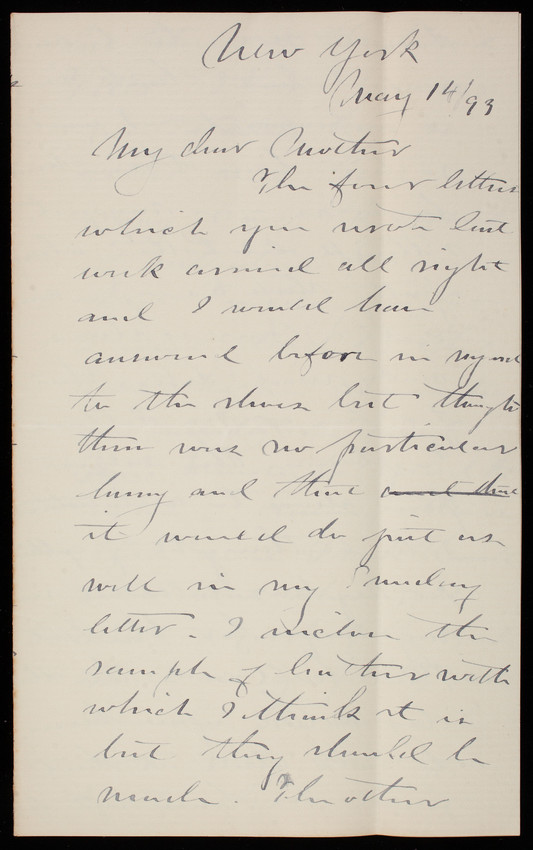 New York
May 14/93
My dear Mother
The four letters
which you wrote last
week arrived all right
and I would have
answered before in regard
to the shoes but thought
there was no particular
hurry and that and that
it would do just as
well in my Sunday
letter. I inclose the
sample of leather with
which I think it is
but they should be
made. The other